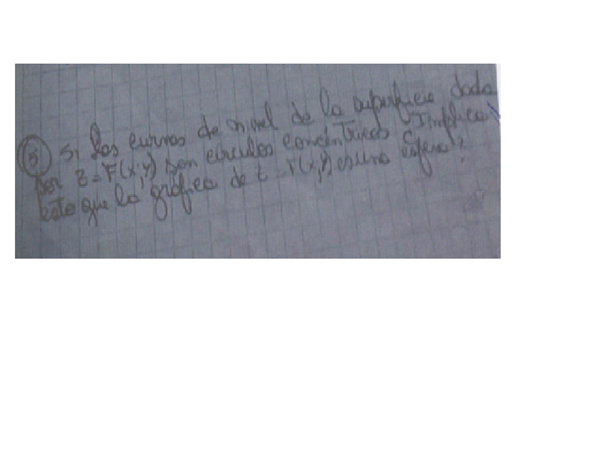 5) Si las curvas de nivel de la superficie dada
por z = F(x,y) son círculos concéntricos ¿Implica
esto que la gráfica de z = F(x,y) es una esfera?